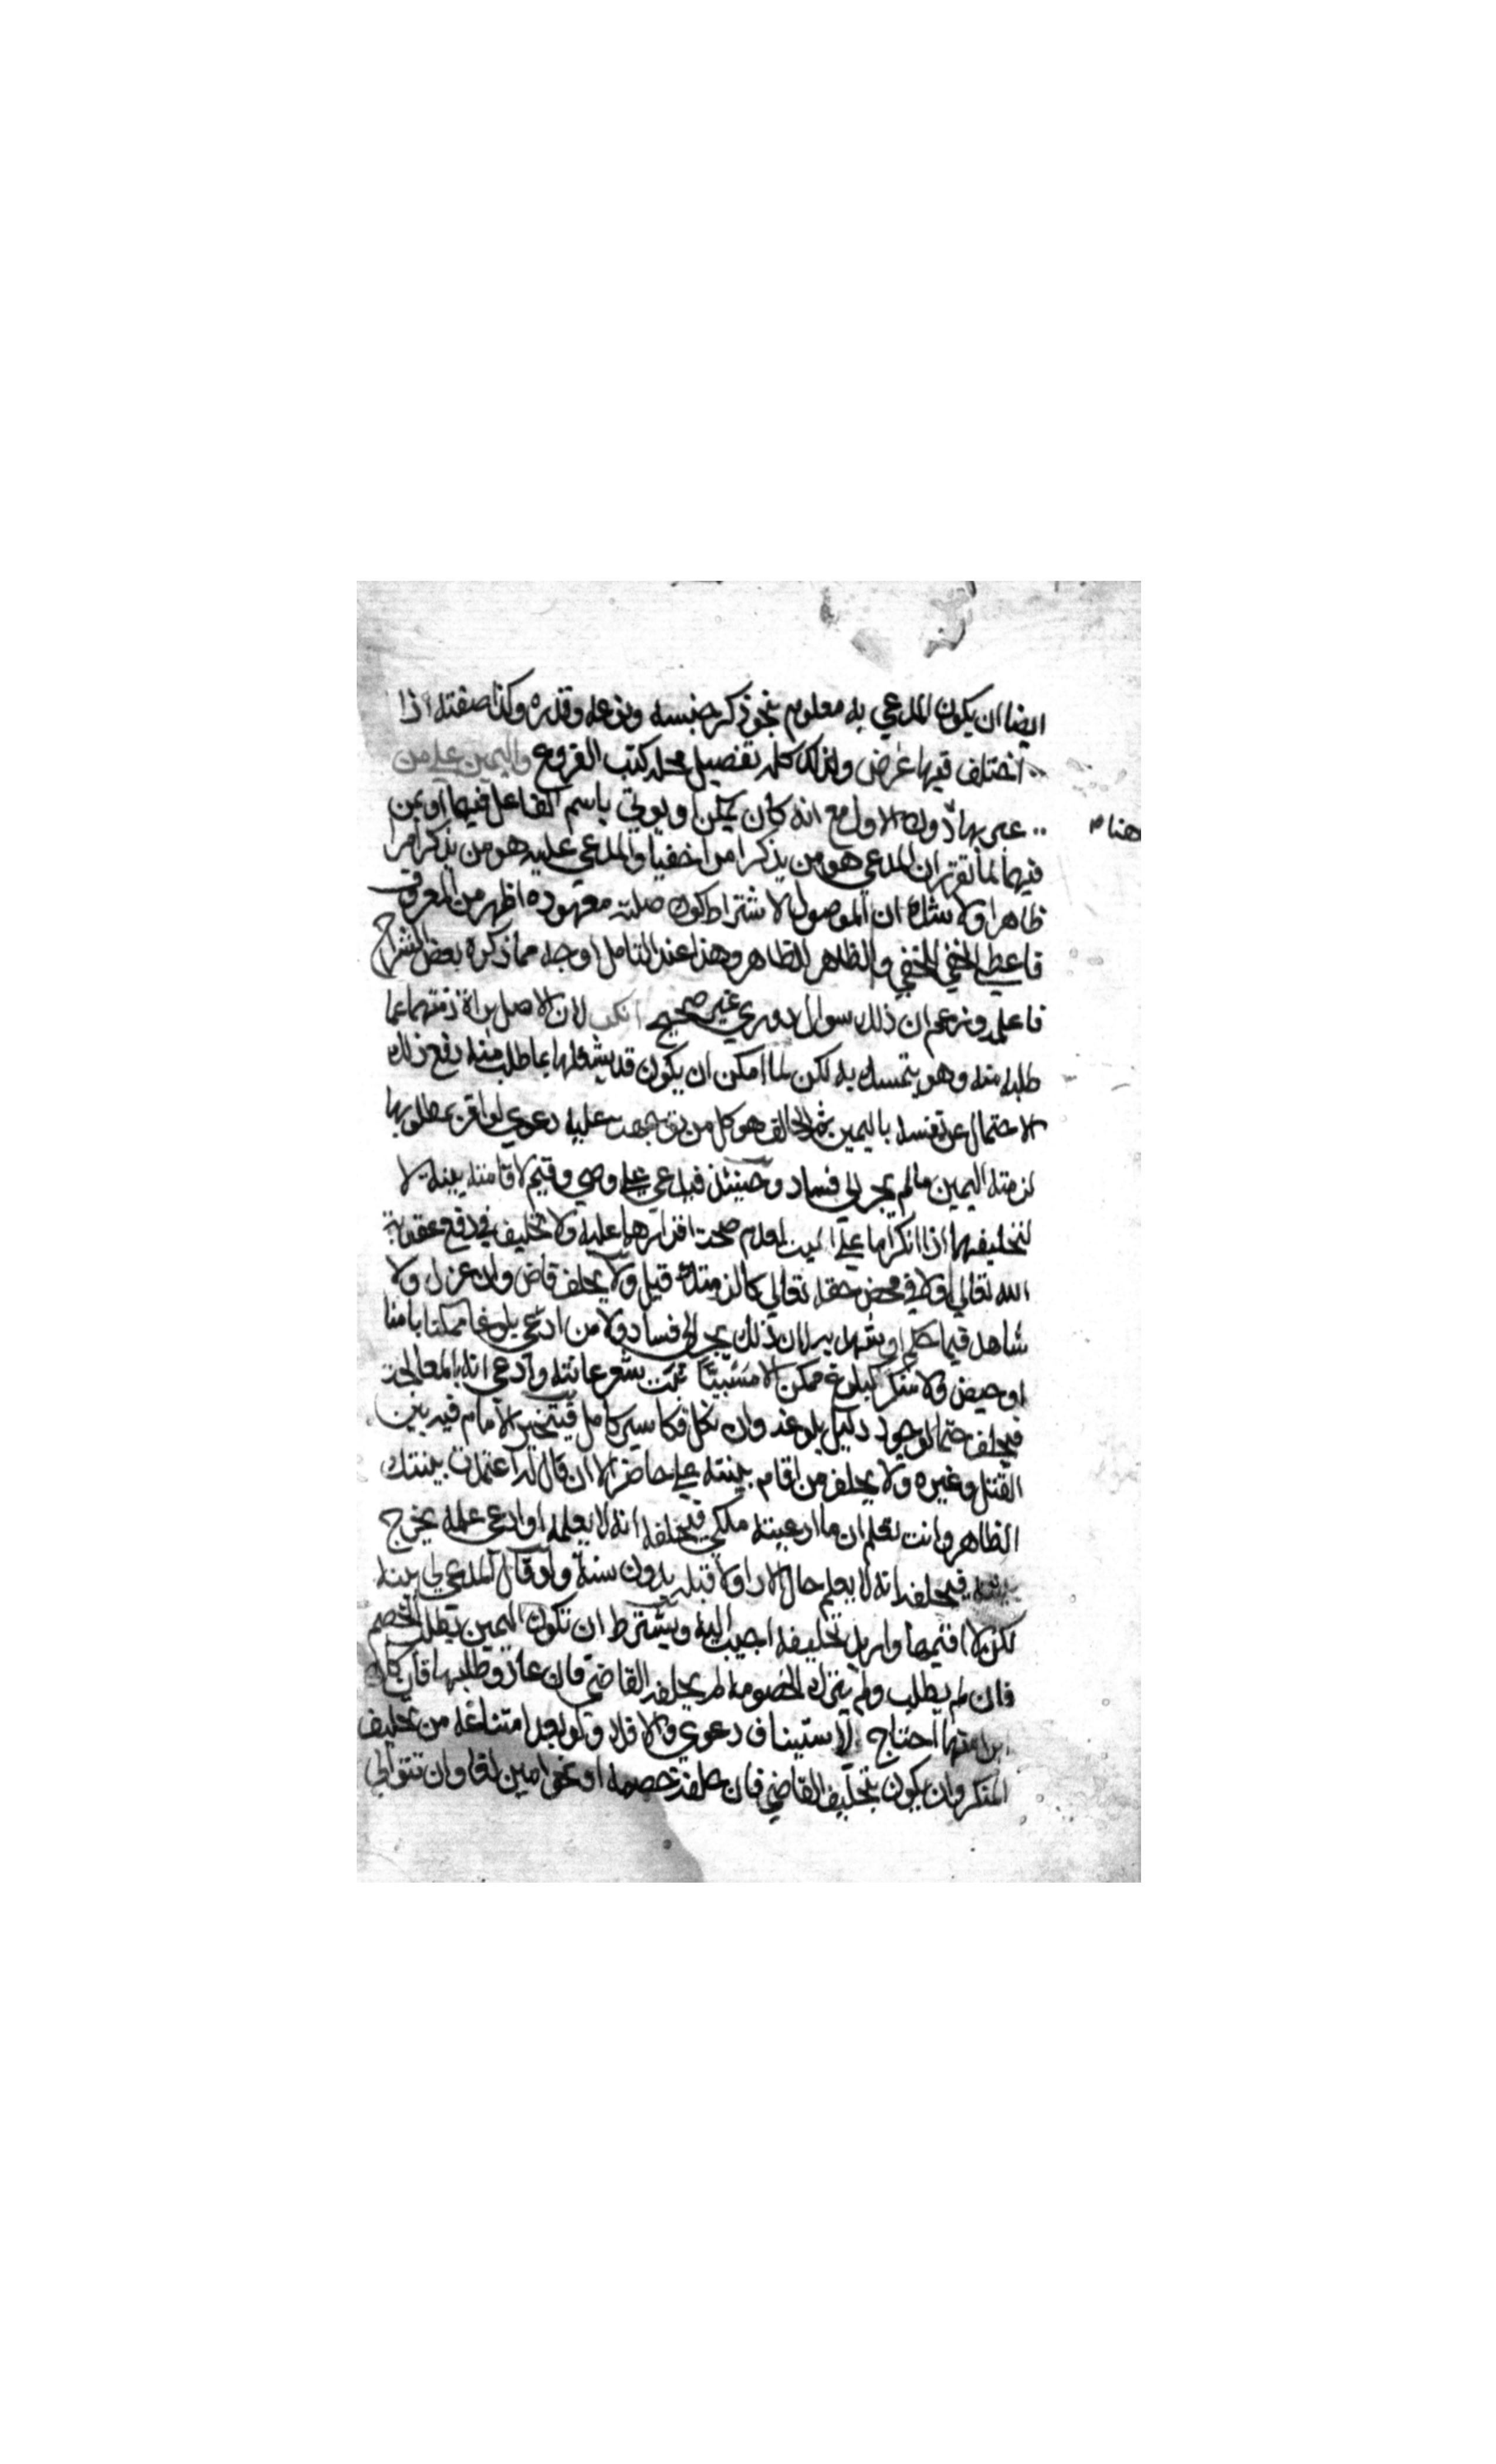 ايضا ان يكون المدعي به معلوم بنحو ذكر جنسه ونوعه وقدره وكذا صفته اذا
اختلف فيها غرض ولذلك كله تفصيل محله كتب الفروع واليمين على من
هنا عبر بها دون الاول مع انه كان يمكن ان يوتى باسم الفاعل فيهما او بمن
فيهما لما تقرر ان المدعي هو من يذكر امرا خفيا والمدعى عليه هو من يذكر امرا
ظاهرا ولا شك ان الموصول لاشتراط كون صلته معهوده اظهر من المعرف
فاعطي الخفي للخفي والظاهر للظاهر وهذا عند التامل اوجه مما ذكره بعض الشراح
فاعلمه وزعم ان ذلك سوال دوري غير صحيح انكر لان الاصل براة ذمته عما
طلب منه وهو يتمسك به لكن لما امكن ان يكون قد شغلها بما طلب منه دفع ذلك
الاحتمال عن نفسه باليمين ثم الحالف هو كل من توجهت عليه دعوى لو اقر بمطلوبها
لزمته اليمين ما لم يجر الى فساد وحينئذ فيدعى على وصي وقيم لاقامته بينة لا
لتحليفهما اذا انكرا ما على الميت لعدم صحة اقرارهما عليه ولا تحليف في دفع عقوبة
الله تعالى ولا في محض حقه تعالى كالزومته قيل ولا يحلف قاض وان عزل ولا
شاهد فيما حكم او شهد به لان ذلك يجر الى فساد ولا من ادعى بلوغا ممكنا بامنا
او حيض ولا منكر كبلوغ ممكن الا مسبيا نبت شعر عانته وادعى انه بالمعالجة
فيحلف حتما لوجود دليل بلوغه وان نكل فكاسير كامل فيتخير الامام فيه بين
القتل وغيره ولا يحلف من اقام بينته على حاضر الا ان قال له اعتمدت بينتك
الظاهر وانت تعلم ان ما ادعيته ملكي فيحلفه انه لا يعلمه او ادعى علمه يجرح
بينته فيحلفه انه لا يعلم حال الادا ولا قبله بدون سنة ولو قال المدعي لي بينة
لكن لا اقيمها واريد تحليفه اجيب اليه ويشترط ان تكون اليمين بطلب الخصم
فان لم يطلب ولم يترك الخصومة لم يحلفه القاضي فان عاد وطلبها فان كان
ابراه منها احتاج لاستيناف دعوى والا فلا ولو بعد امتناعه من تحليف
المنكر وان يكون بتحليف القاضي فان حلفه خصمه او نحو امين لغا وان تتوالى